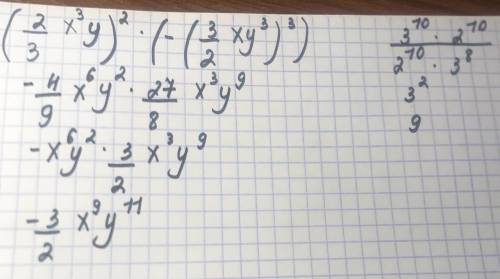 (2/3 x³y)² · (-(3/2 xy³)³)
-4/9 x⁶y² · 27/8 x³y⁹
-x⁶y² · 3/2 x³y⁹
-3/2 x⁹y¹¹
3¹⁰ · 2¹⁰ / 2¹⁰ · 3⁸
3²
9